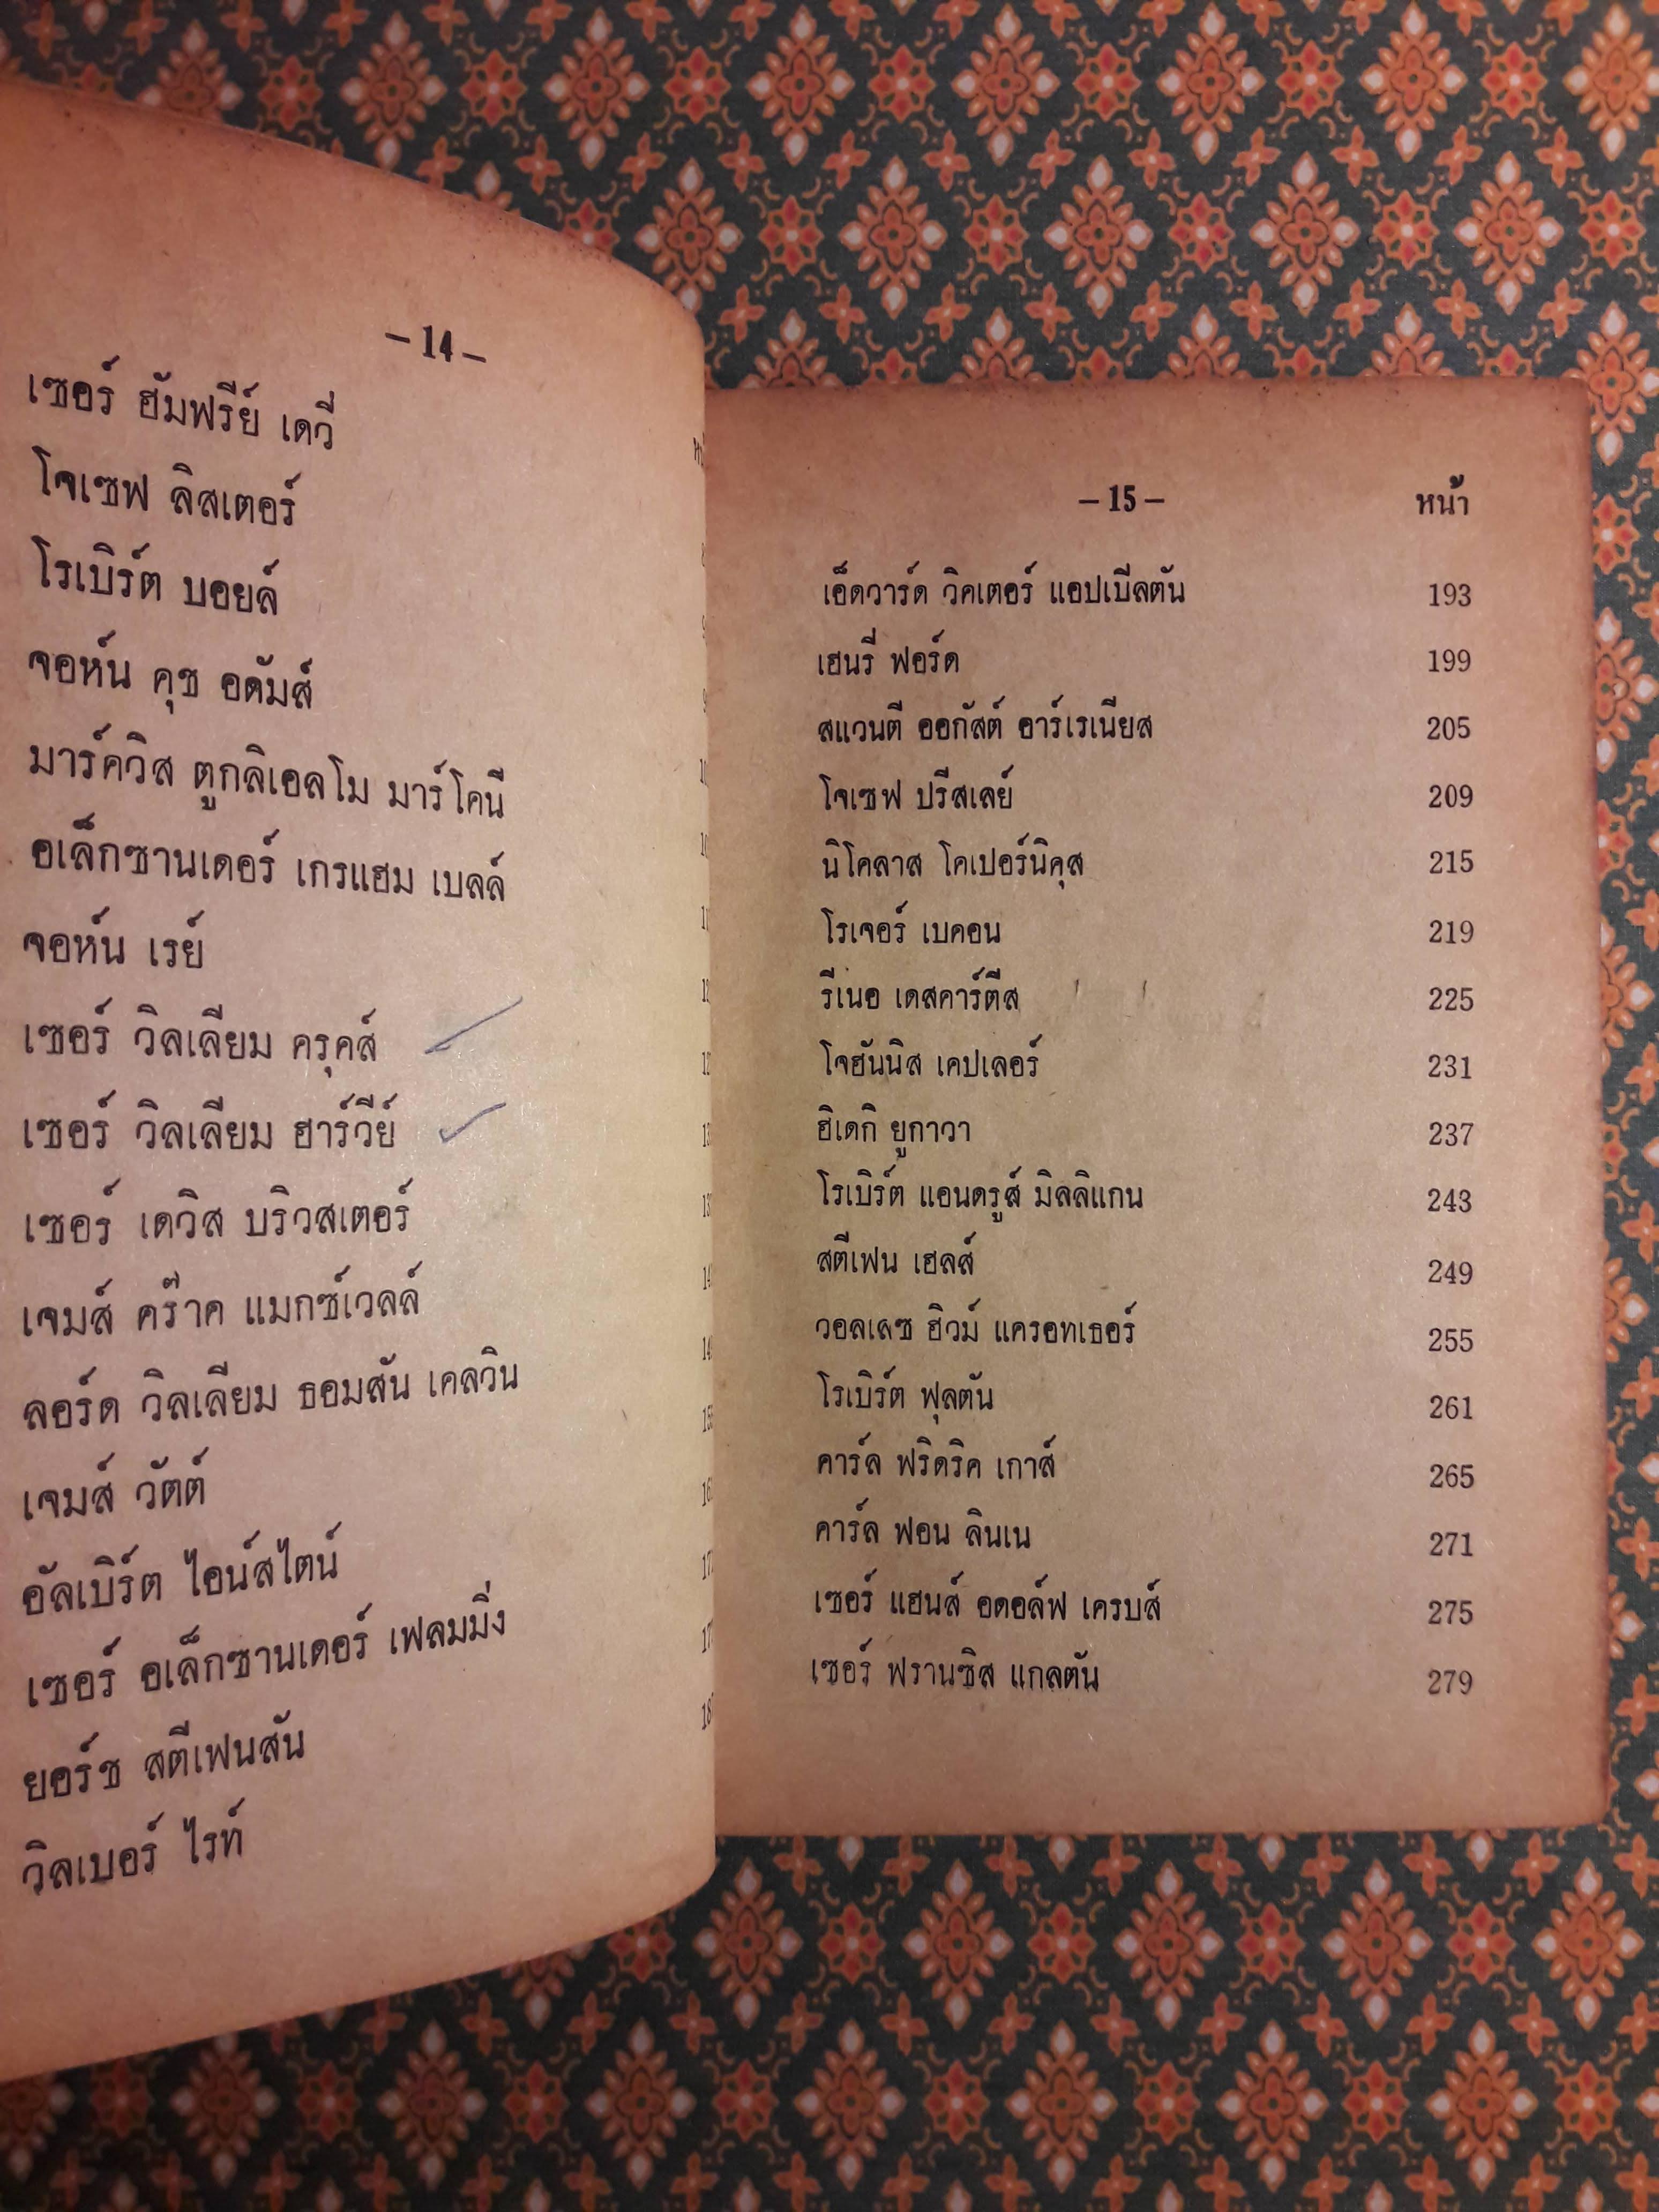 –14–
เซอร์ ฮัมฟรีย์ เดวี่
โจเซฟ ลิสเตอร์
โรเบิร์ต บอยล์
จอห์น คุช อดัมส์
มาร์ควิส ตูกลิเอลโม มาร์โคนี
อเล็กซานเดอร์ เกรแฮม เบลล์
จอห์น เรย์
เซอร์ วิลเลียม ครุคส์
เซอร์ วิลเลียม ฮาร์วีย์
เซอร์ เดวิส บริวสเตอร์
เจมส์ คร๊าค แมกซ์เวลล์
ลอร์ด วิลเลียม ธอมสัน เคลวิน
เจมส์ วัตต์
อัลเบิร์ต ไอน์สไตน์
เซอร์ อเล็กซานเดอร์ เฟลมมิ่ง
ยอร์ช สตีเฟนสัน
วิลเบอร์ ไรท์
–15– หน้า
เอ็ดวาร์ด วิคเตอร์ แอปเบีลตัน 193
เฮนรี่ ฟอร์ด 199
สแวนตี ออกัสต์ อาร์เรเนียส 205
โจเซฟ ปรีสเลย์ 209
นิโคลาส โคเปอร์นิคุส 215
โรเจอร์ เบคอน 219
รีเนอ เดสคาร์ตีส 225
โจฮันนิส เคปเลอร์ 231
ฮิเดกิ ยูกาวา 237
โรเบิร์ต แอนดรูส์ มิลลิแกน 243
สตีเฟน เฮลส์ 249
วอลเลซ ฮิวม์ แครอทเธอร์ 255
โรเบิร์ต ฟุลตัน 261
คาร์ล ฟริดริค เกาส์ 265
คาร์ล ฟอน ลินเน 271
เซอร์ แฮนส์ อดอล์ฟ เครบส์ 275
เซอร์ ฟรานซิส แกลตัน 279